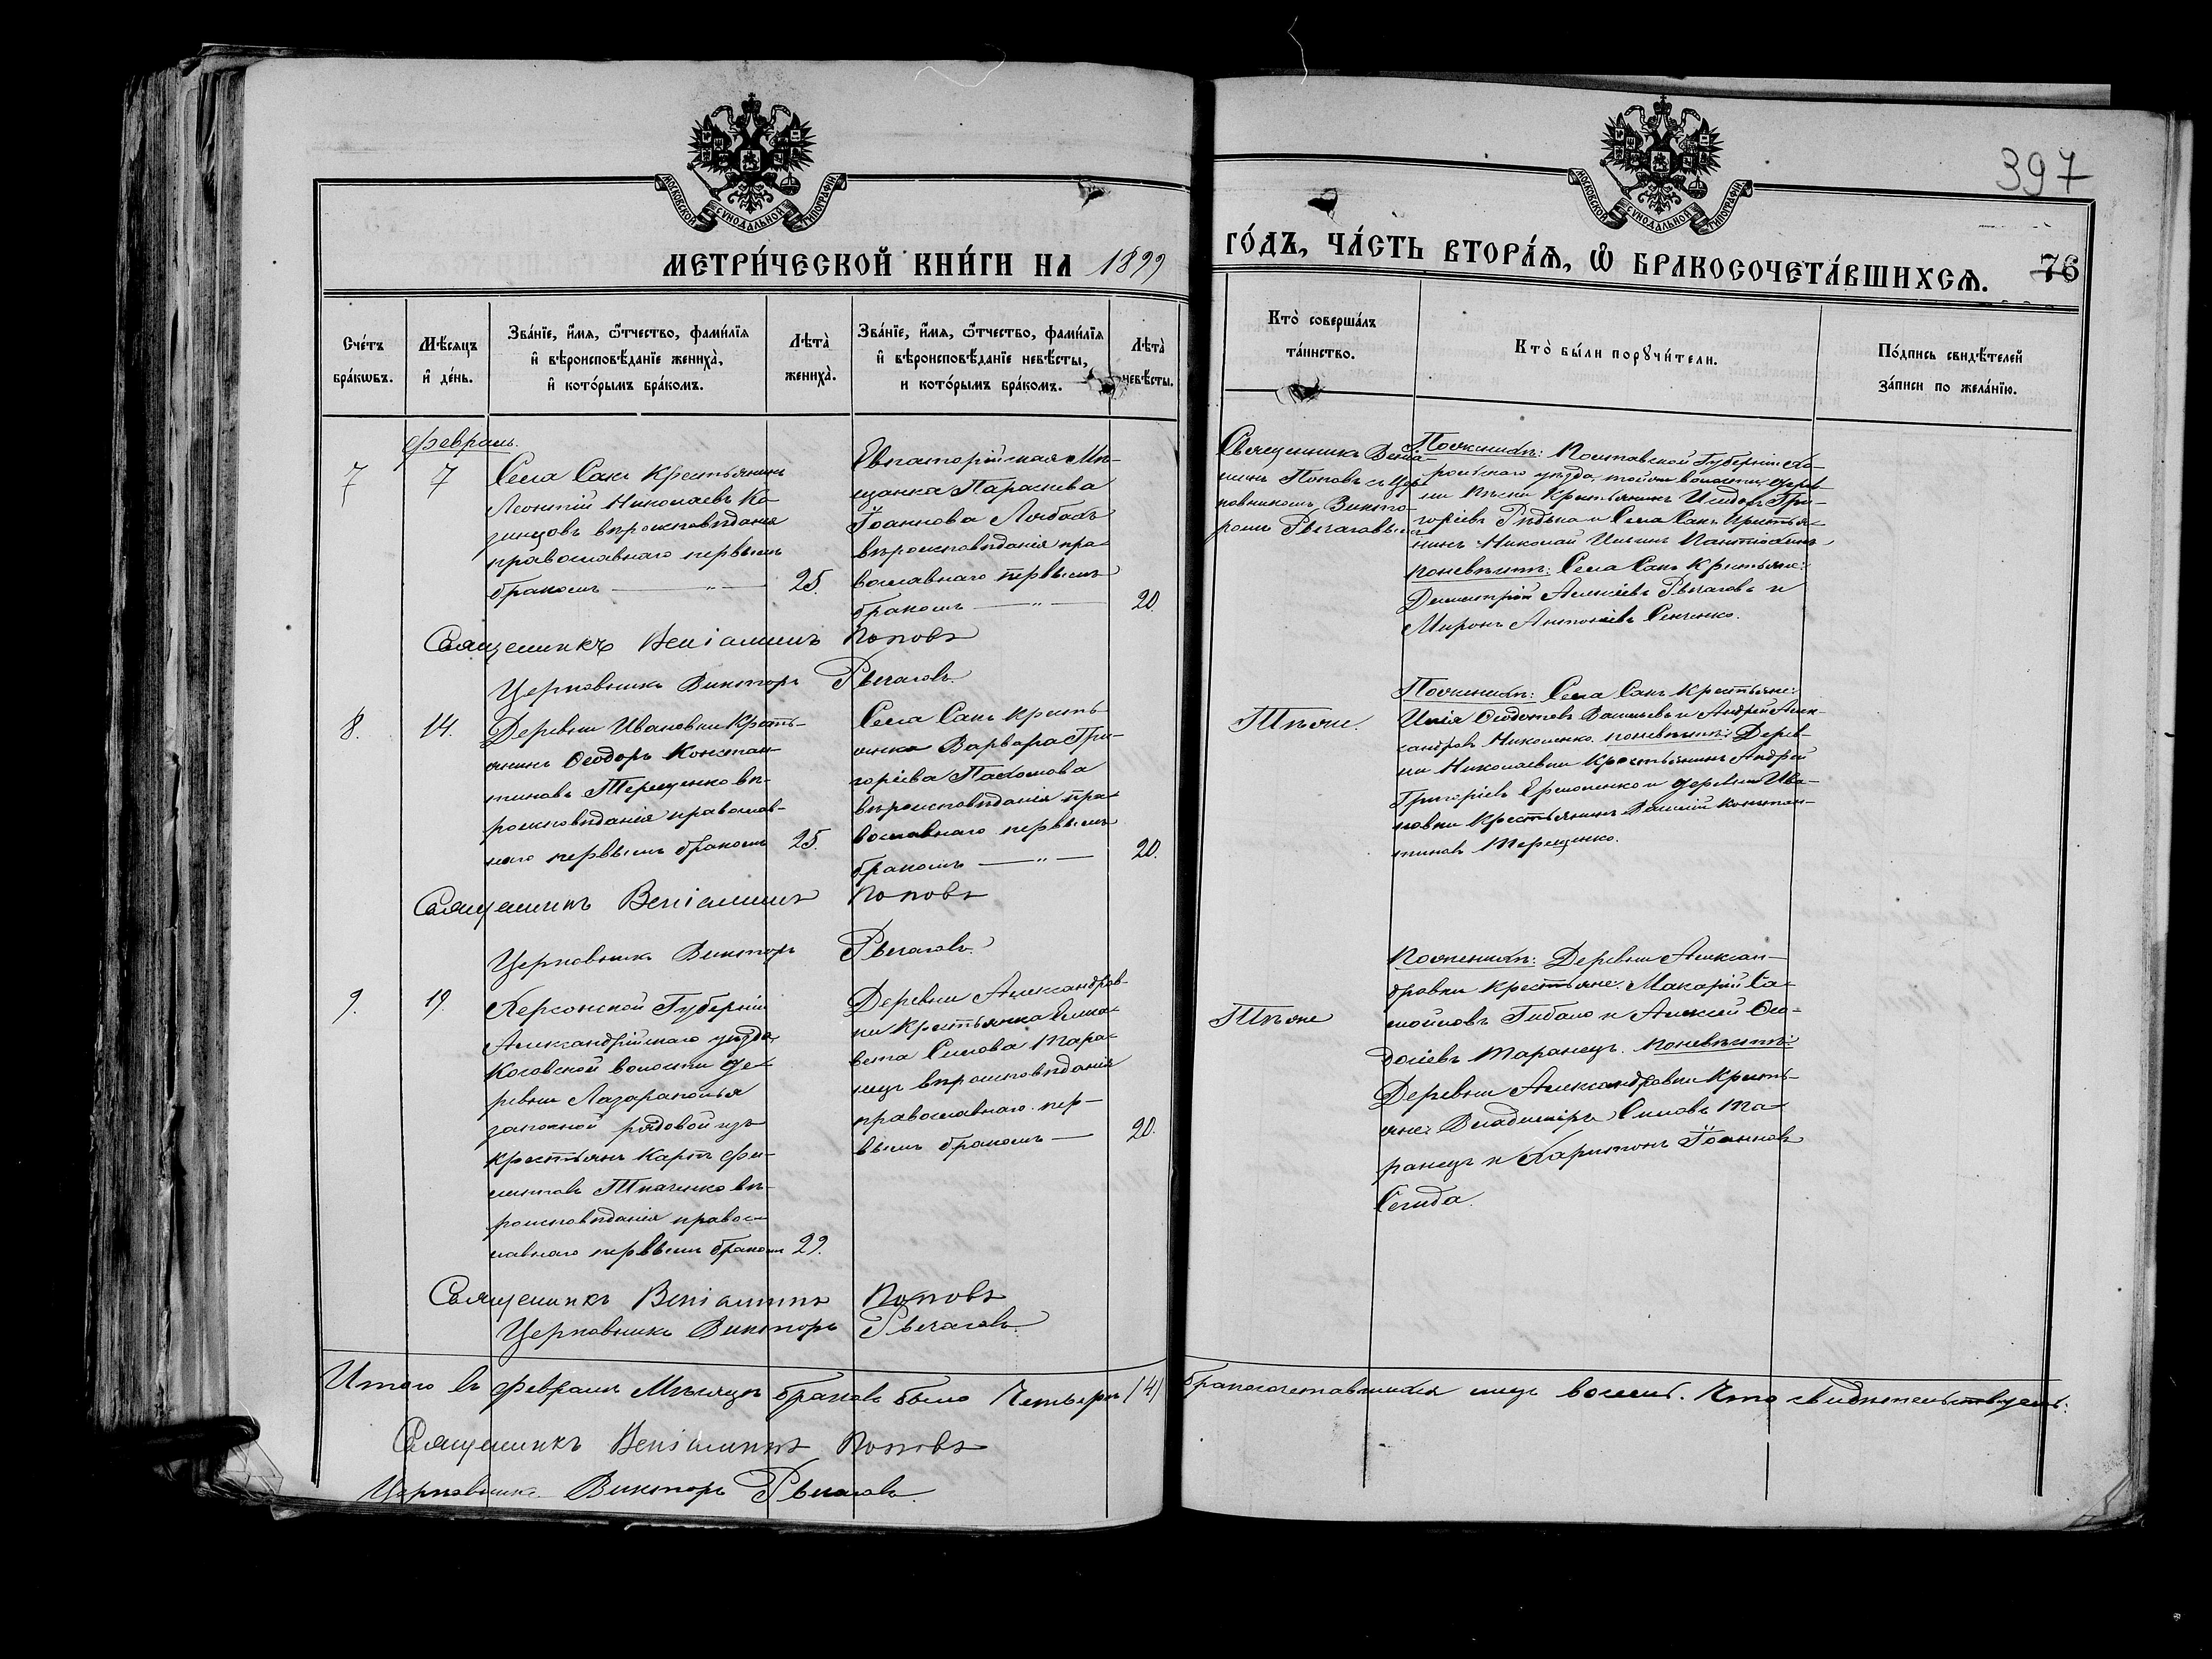 397
МОСКОВСКОЙ СѴНОДАЛЬНОЙ ТИПОГРАФІИ
МОСКОВСКОЙ СѴНОДАЛЬНОЙ ТИПОГРАФІИ
МЕТРИ́ЧЕСКОЙ КНИ́ГИ НА 1899
ГО́ДЪ, ЧА́СТЬ ВТОРА́Ѧ, Ѽ БРАКОСОЧЕТА́ВШИХСѦ.
76
Сче́тъ бра́кѡвъ.
Мѣ́сяцъ и҆ де́нь.
Зва́нїе, и҆́мя, ѻ҆́тчество, фами́лїя
и҆ вѣроисповѣ́данїе жениха̀,
и҆ кото́рымъ бра́комъ.
Лѣта̀ жениха̀.
Зва́нїе, и҆́мя, ѻ҆́тчество, фами́лїя
и҆ вѣроисповѣ́данїе невѣ́сты,
и кото́рымъ бра́комъ.
Лѣта̀ невѣ́сты.
Кто̀ соверша́лъ
та́инство.
Кто̀ бы́ли порꙋчи́тели.
По́дпись свидѣ́телей
за́писи по жела́нїю.
Февраль.
7
7
Села Сакъ Крестьянинъ
Леонтій Николаевъ Ка
зинцовъ вѣроисповѣданія
православнаго первымъ
бракомъ — „ —
25.
Евпаторійская Мѣ-
щанка Параскева
Іоаннова Лобасъ
вѣроисповѣданія пра-
вославнаго первымъ
бракомъ — „ —
20.
Священникъ Веніа-
минъ Поповъ съ Цер-
ковникомъ Викто-
ромъ Рычаговымъ
По женихѣ: Полтавской Губерніи Хо-
рольскаго уѣзда, той же волости, дерев-
ни Пѣски Крестьянинъ Исидоръ Гри-
горіевъ Рѣдька и Села Сакъ Крестья-
нинъ Николай Ильинъ Пантюхинъ
По невѣстѣ: Села Сакъ Крестьяне:
Димитрій Алексѣевъ Рычаговъ и
Миронъ Антоніевъ Сенченко.
Священникъ Веніаминъ Поповъ
Церковникъ Викторъ Рычаговъ
8.
14.
Деревни Ивановки Кресть-
янинъ Ѳеодоръ Констан-
тиновъ Терещенко вѣ-
роисповѣданія православ-
наго первымъ бракомъ
25.
Села Сакъ Кресть-
янка Варвара Гри-
горіева Пахомова
вѣроисповѣданія пра-
вославнаго первымъ
бракомъ — „ —
20.
Тѣ же.
По женихѣ: Села Сакъ Крестьяне:
Илія Ѳедотовъ Васильевъ и Андрей Алек-
сандровъ Николенко. По невѣстѣ: Дерев-
ни Николаевки Крестьянинъ Андрей
Григоріевъ Ермоленко и деревни Ива-
новки Крестьянинъ Василій Констан-
тиновъ Терещенко.
Священникъ Веніаминъ Поповъ
Церковникъ Викторъ Рычаговъ
9.
19.
Херсонской Губерніи
Александрійскаго уѣзда,
Косовской волости де-
ревни Лазарополья
запасной рядовой изъ
крестьянъ Карпъ Фи-
липповъ Ткаченко вѣ-
роисповѣданія правос-
лавнаго первымъ бракомъ
29.
Деревни Александров-
ки Крестьянка Елиса-
вета Силова Тара-
нецъ вѣроисповѣданія
православнаго пер-
вымъ бракомъ —
20.
Тѣ же
По женихѣ: Деревни Алексан-
дровки Крестьяне: Макарій Са-
мойловъ Гибало и Алексѣй Ѳео-
досіевъ Таранецъ. По невѣстѣ:
Деревни Александровки Кресть-
яне: Владиміръ Силовъ Та-
ранецъ и Харитонъ Іоанновъ
Сегида.
Священникъ Веніаминъ Поповъ
Церковникъ Викторъ Рычаговъ
Итого въ Февралѣ Мѣсяцѣ браковъ было Четыре /4/ бракосочетавшихся лицъ восемь. Что свидѣтельствуемъ:
Священникъ Веніаминъ Поповъ
Церковникъ Викторъ Рычаговъ.